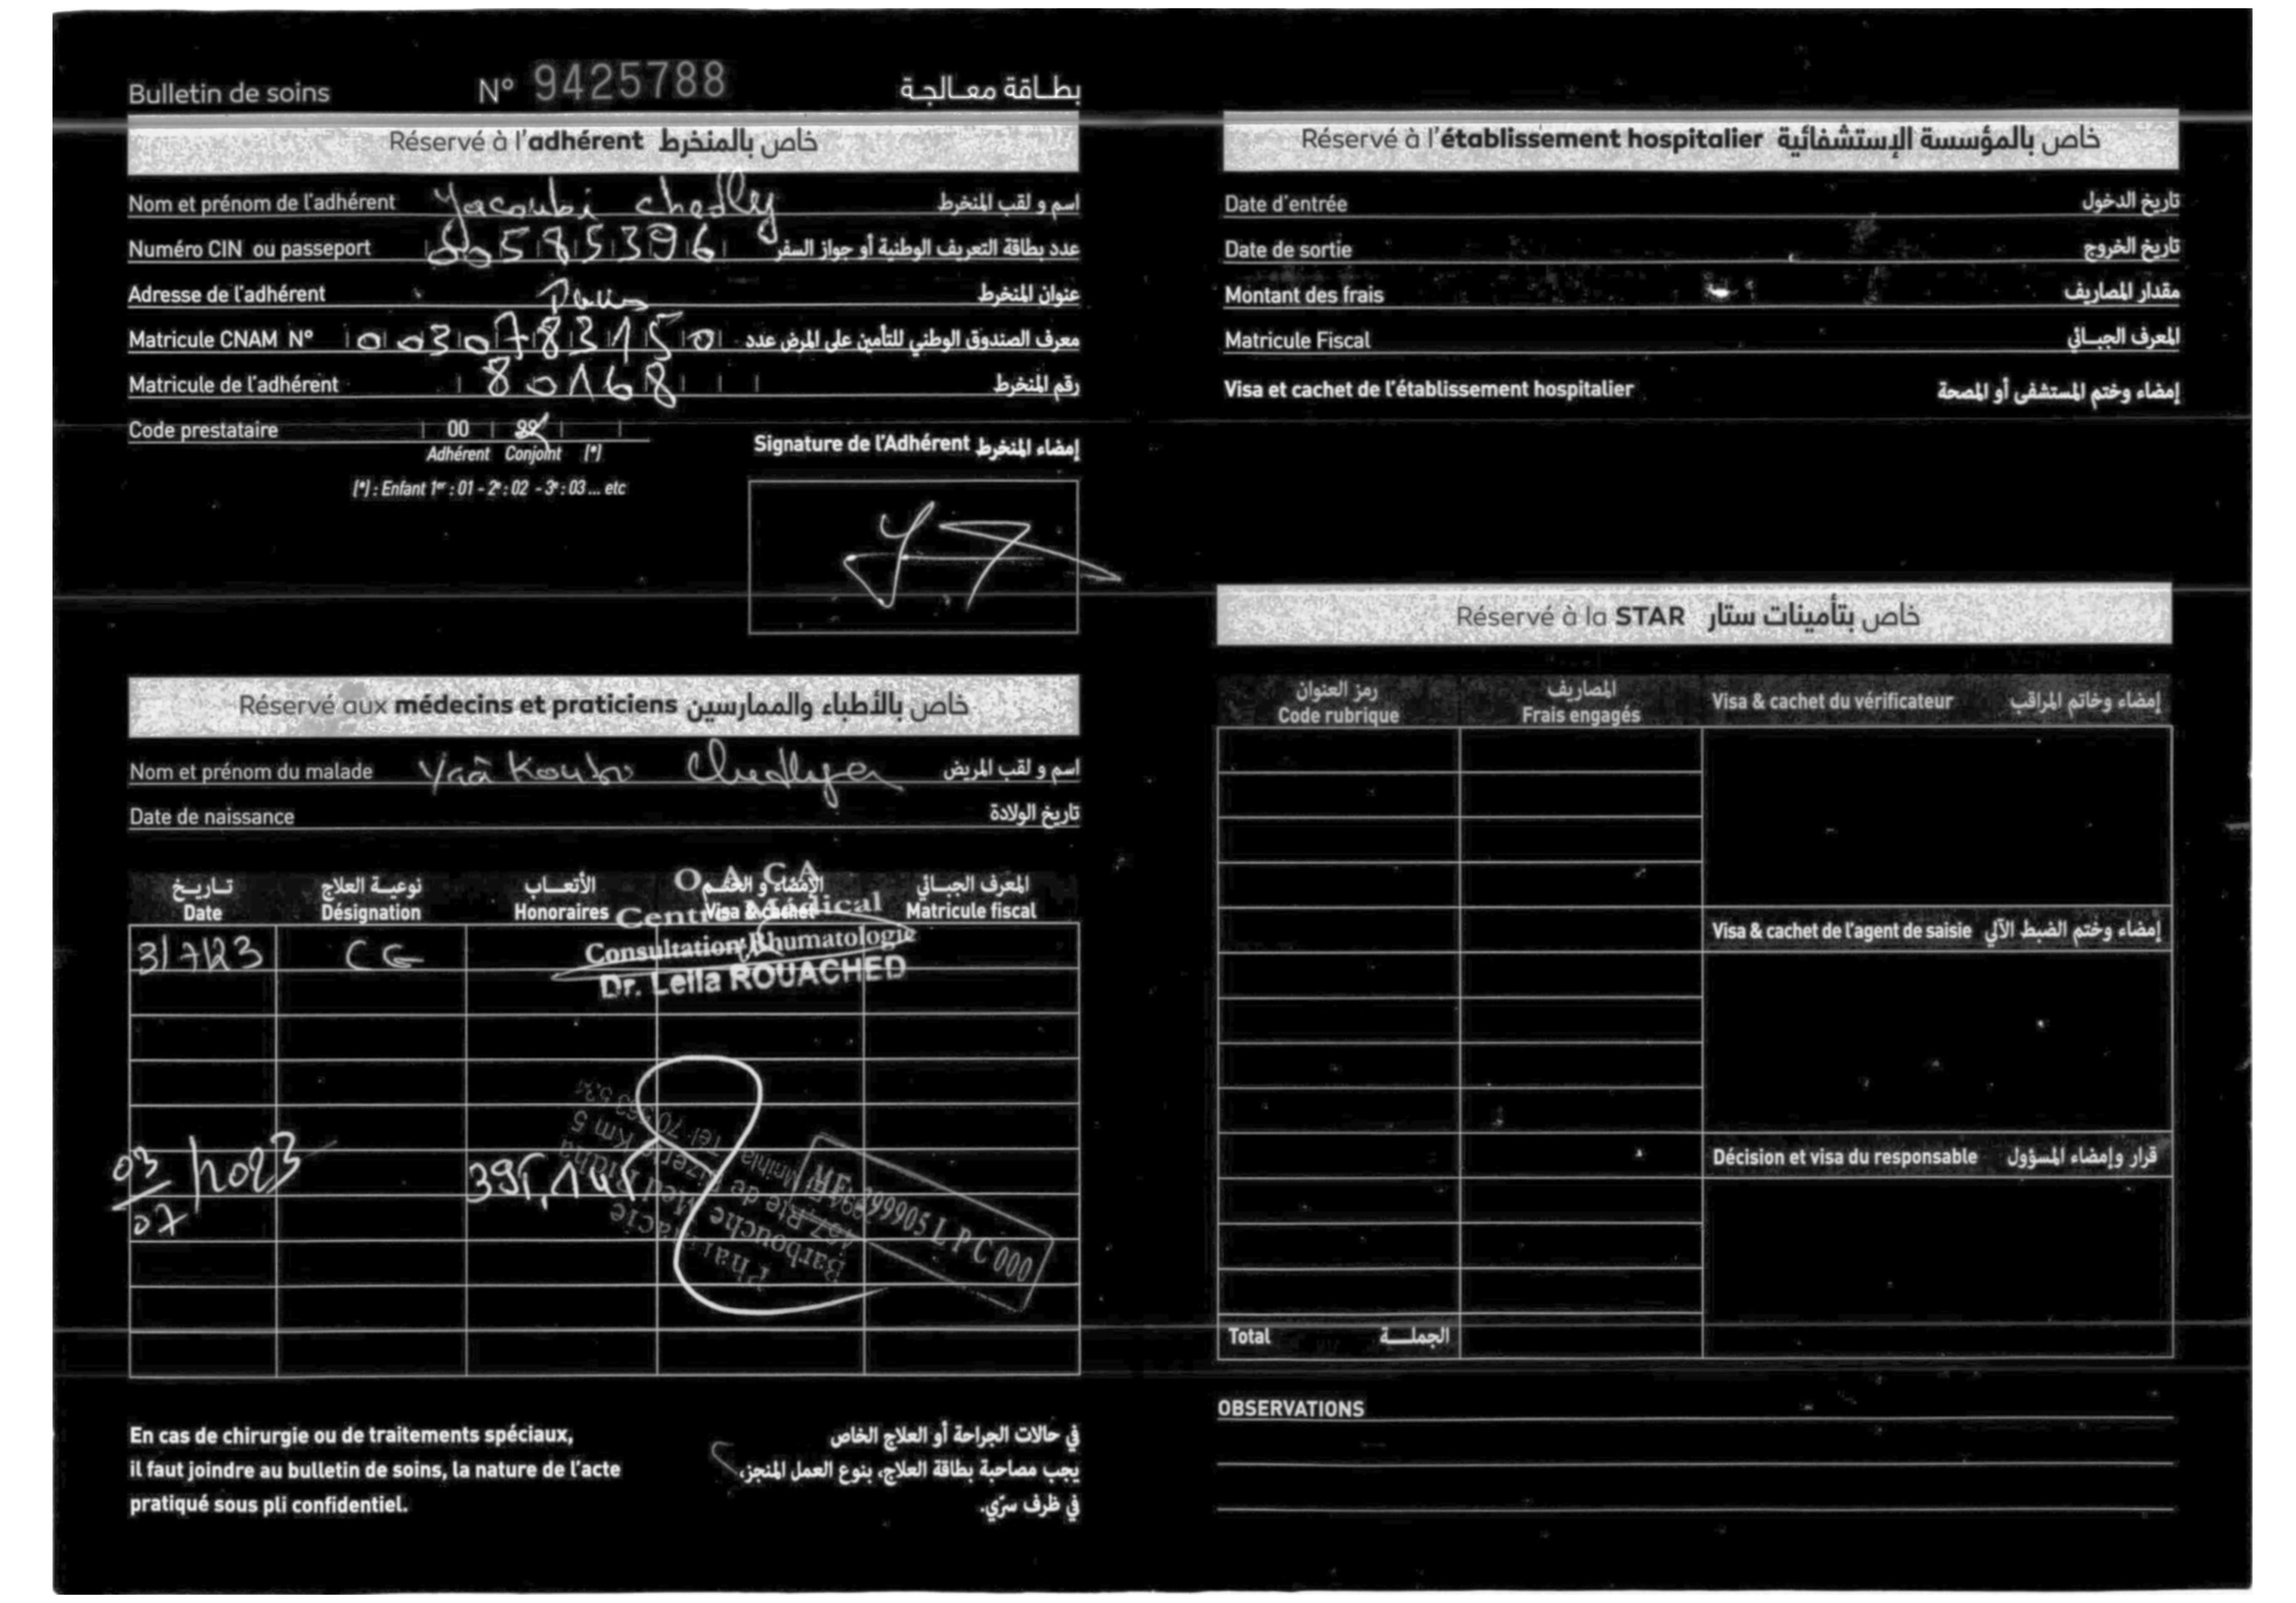 Bulletin de soins N° 9425788 بطاقة معالجة
Réservé à l'adhérent خاص بالمنخرط
Nom et prénom de l'adhérent Yacoubi chedly اسم و لقب المنخرط
Numéro CIN ou passeport 00585396 عدد بطاقة التعريف الوطنية أو جواز السفر
Adresse de l'adhérent عنوان المنخرط
Matricule CNAM N° 0030783150 معرف الصندوق الوطني للتأمين على المرض عدد
Matricule de l'adhérent 80168 رقم المنخرط
Code prestataire 00 99
Adhérent Conjoint (*)
(*) : Enfant 1er : 01 - 2e : 02 - 3e : 03 ... etc
Signature de l'Adhérent إمضاء المنخرط
Réservé aux médecins et praticiens خاص بالأطباء والممارسين
Nom et prénom du malade Yaâkoubi Chedlya اسم و لقب المريض
Date de naissance تاريخ الولادة
تاريخ نوعية العلاج الأتعاب الإمضاء و الختم المعرف الجبائي
Date Désignation Honoraires Visa & cachet Matricule fiscal
O.A.C.A
Centre Médical
Consultation Rhumatologie
Dr. Leila ROUACHED
3/7/23 CG
03/07/2023 395,145
Pharmacie
Barbouche Med Ridha
457, Rte de Bizerte Km 5
Mnihla
MF 399905 L P C 000
En cas de chirurgie ou de traitements spéciaux,
il faut joindre au bulletin de soins, la nature de l'acte
pratiqué sous pli confidentiel.
في حالات الجراحة أو العلاج الخاص
يجب مصاحبة بطاقة العلاج، بنوع العمل المنجز،
في ظرف سرّي.
Réservé à l'établissement hospitalier خاص بالمؤسسة الإستشفائية
Date d'entrée تاريخ الدخول
Date de sortie تاريخ الخروج
Montant des frais مقدار المصاريف
Matricule Fiscal المعرف الجبائي
Visa et cachet de l'établissement hospitalier إمضاء وختم المستشفى أو المصحة
Réservé à la STAR خاص بتأمينات ستار
رمز العنوان المصاريف
Code rubrique Frais engagés Visa & cachet du vérificateur إمضاء وخاتم المراقب
Visa & cachet de l'agent de saisie إمضاء وختم الضبط الآلي
Décision et visa du responsable قرار وإمضاء المسؤول
Total الجملة
OBSERVATIONS